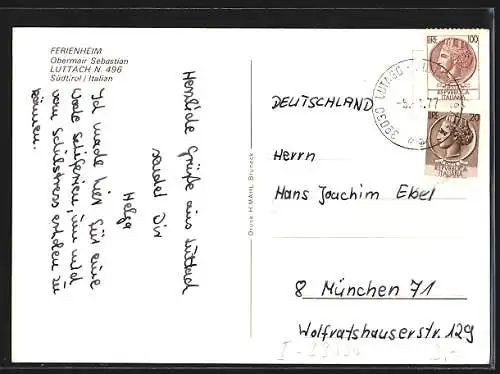 FERIENHEIM
Obermair Sebastian
LUTTACH N. 496
Südtirol / Italien
Herzliche Grüße aus Luttach
sendet Dir
Helga
Ich mache hier für eine
Woche Schiferien, um mich
vom Schulstress erholen zu
können.
Druck H. MAHL, Bruneck
DEUTSCHLAND
Herrn
Hans Joachim Ebel
8 München 71
Wolfratshauserstr. 129
LIRE 100
REPVBBLICA
ITALIANA
LIRE 20
REPVBBLICA
ITALIANA
39030 LUTAGO